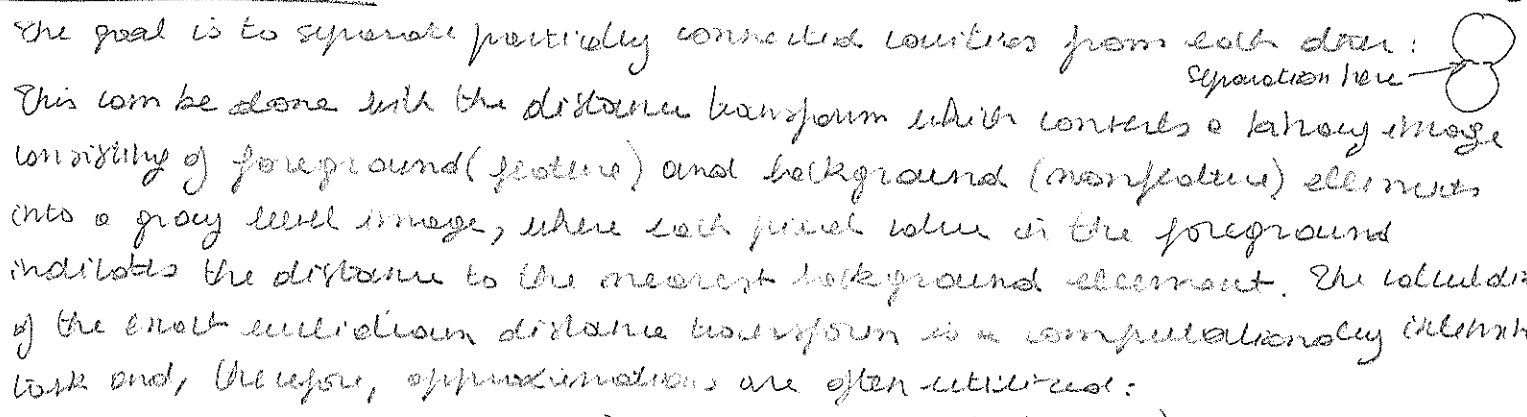 The goal is to separate partially connected cavities from each other:
Separation here
This can be done with the distance transform which converts a binary image
consisting of foreground (feature) and background (nonfeature) elements
into a gray level image, where each pixel value in the foreground
indicates the distance to the nearest background element. The
of the exact euclidean distance transform is a computationally
task and, therefore, approximations are often utilized: